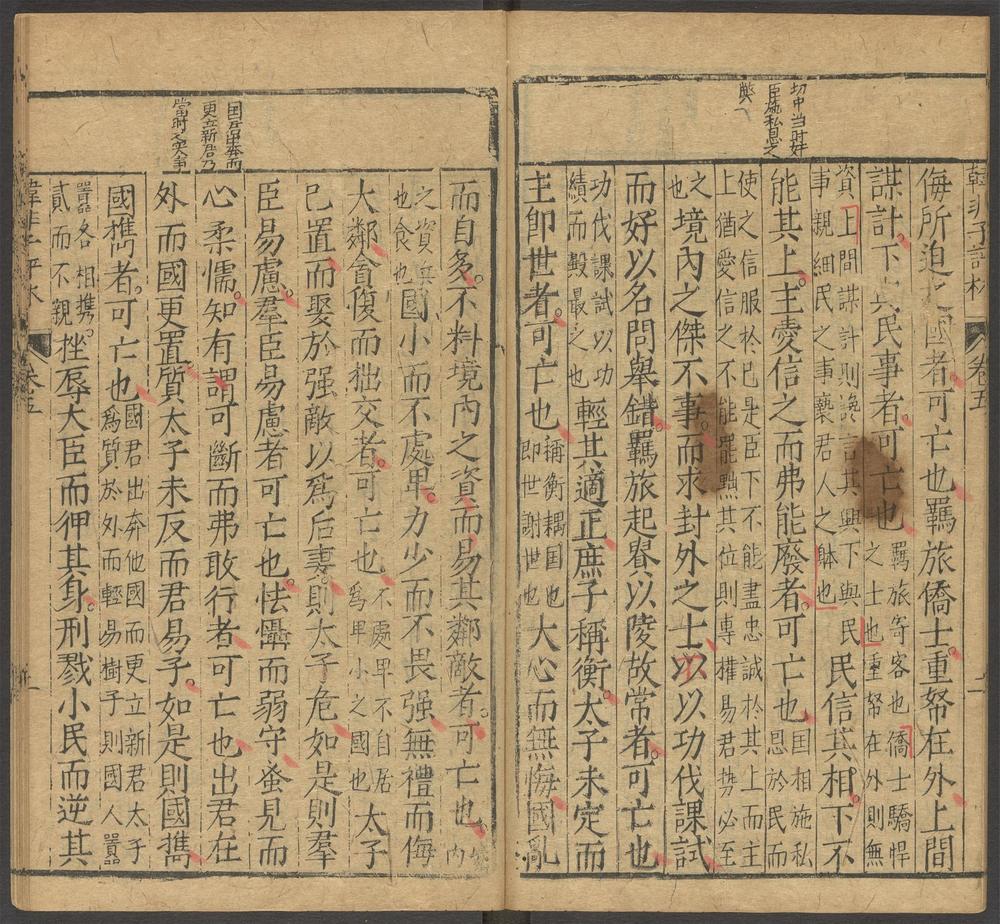 卷五
二
切中当時奸
臣施私恩之
弊
侮所迫之國者可亡也羈旅僑士重帑在外上間
謀計下與民事者可亡也
羈旅寄客也僑士驕悍
之士也重帑在外則無
資上間謀計則讒言其興下與民
事親細民之事褻君人之躰也
民信其相下不
能其上主愛信之而弗能廢者可亡也
国相施私
恩於民而
使之信服於己是臣下不能盡忠誠於其上而主
上猶愛信之不能罷黜其位則專權易君势必至
之
也
境內之傑不事而求封外之士以以功伐課試
而好以名問舉錯羈旅起舉以陵故常者可亡也
功伐課試以功
績而毀最之也
輕其適正庶子稱衡太子未定而
主即世者可亡也
稱衡耦国也
即世謝世也
大心而無悔國亂
国君出奔而
更立新君乃
當時之実事
而自多不料境內之資而易其鄰敵者可亡也
內
之資兵
也食也
國小而不處卑力少而不畏强無禮而侮
大鄰貪愎而拙交者可亡也
不處卑不自居
爲卑小之國也
太子
已置而娶於强敵以爲后妻則太子危如是則羣
臣易慮羣臣易慮者可亡也怯懾而弱守蚤見而
心柔懦知有謂可斷而弗敢行者可亡也出君在
外而國更置質太子未反而君易子如是則國攜
國攜者可亡也
國君出奔他國而更立新君太子
爲質於外而輕易樹子則國人嚚
嚚各相携
貳而不親
挫辱大臣而狎其身刑戮小民而逆其
卷五